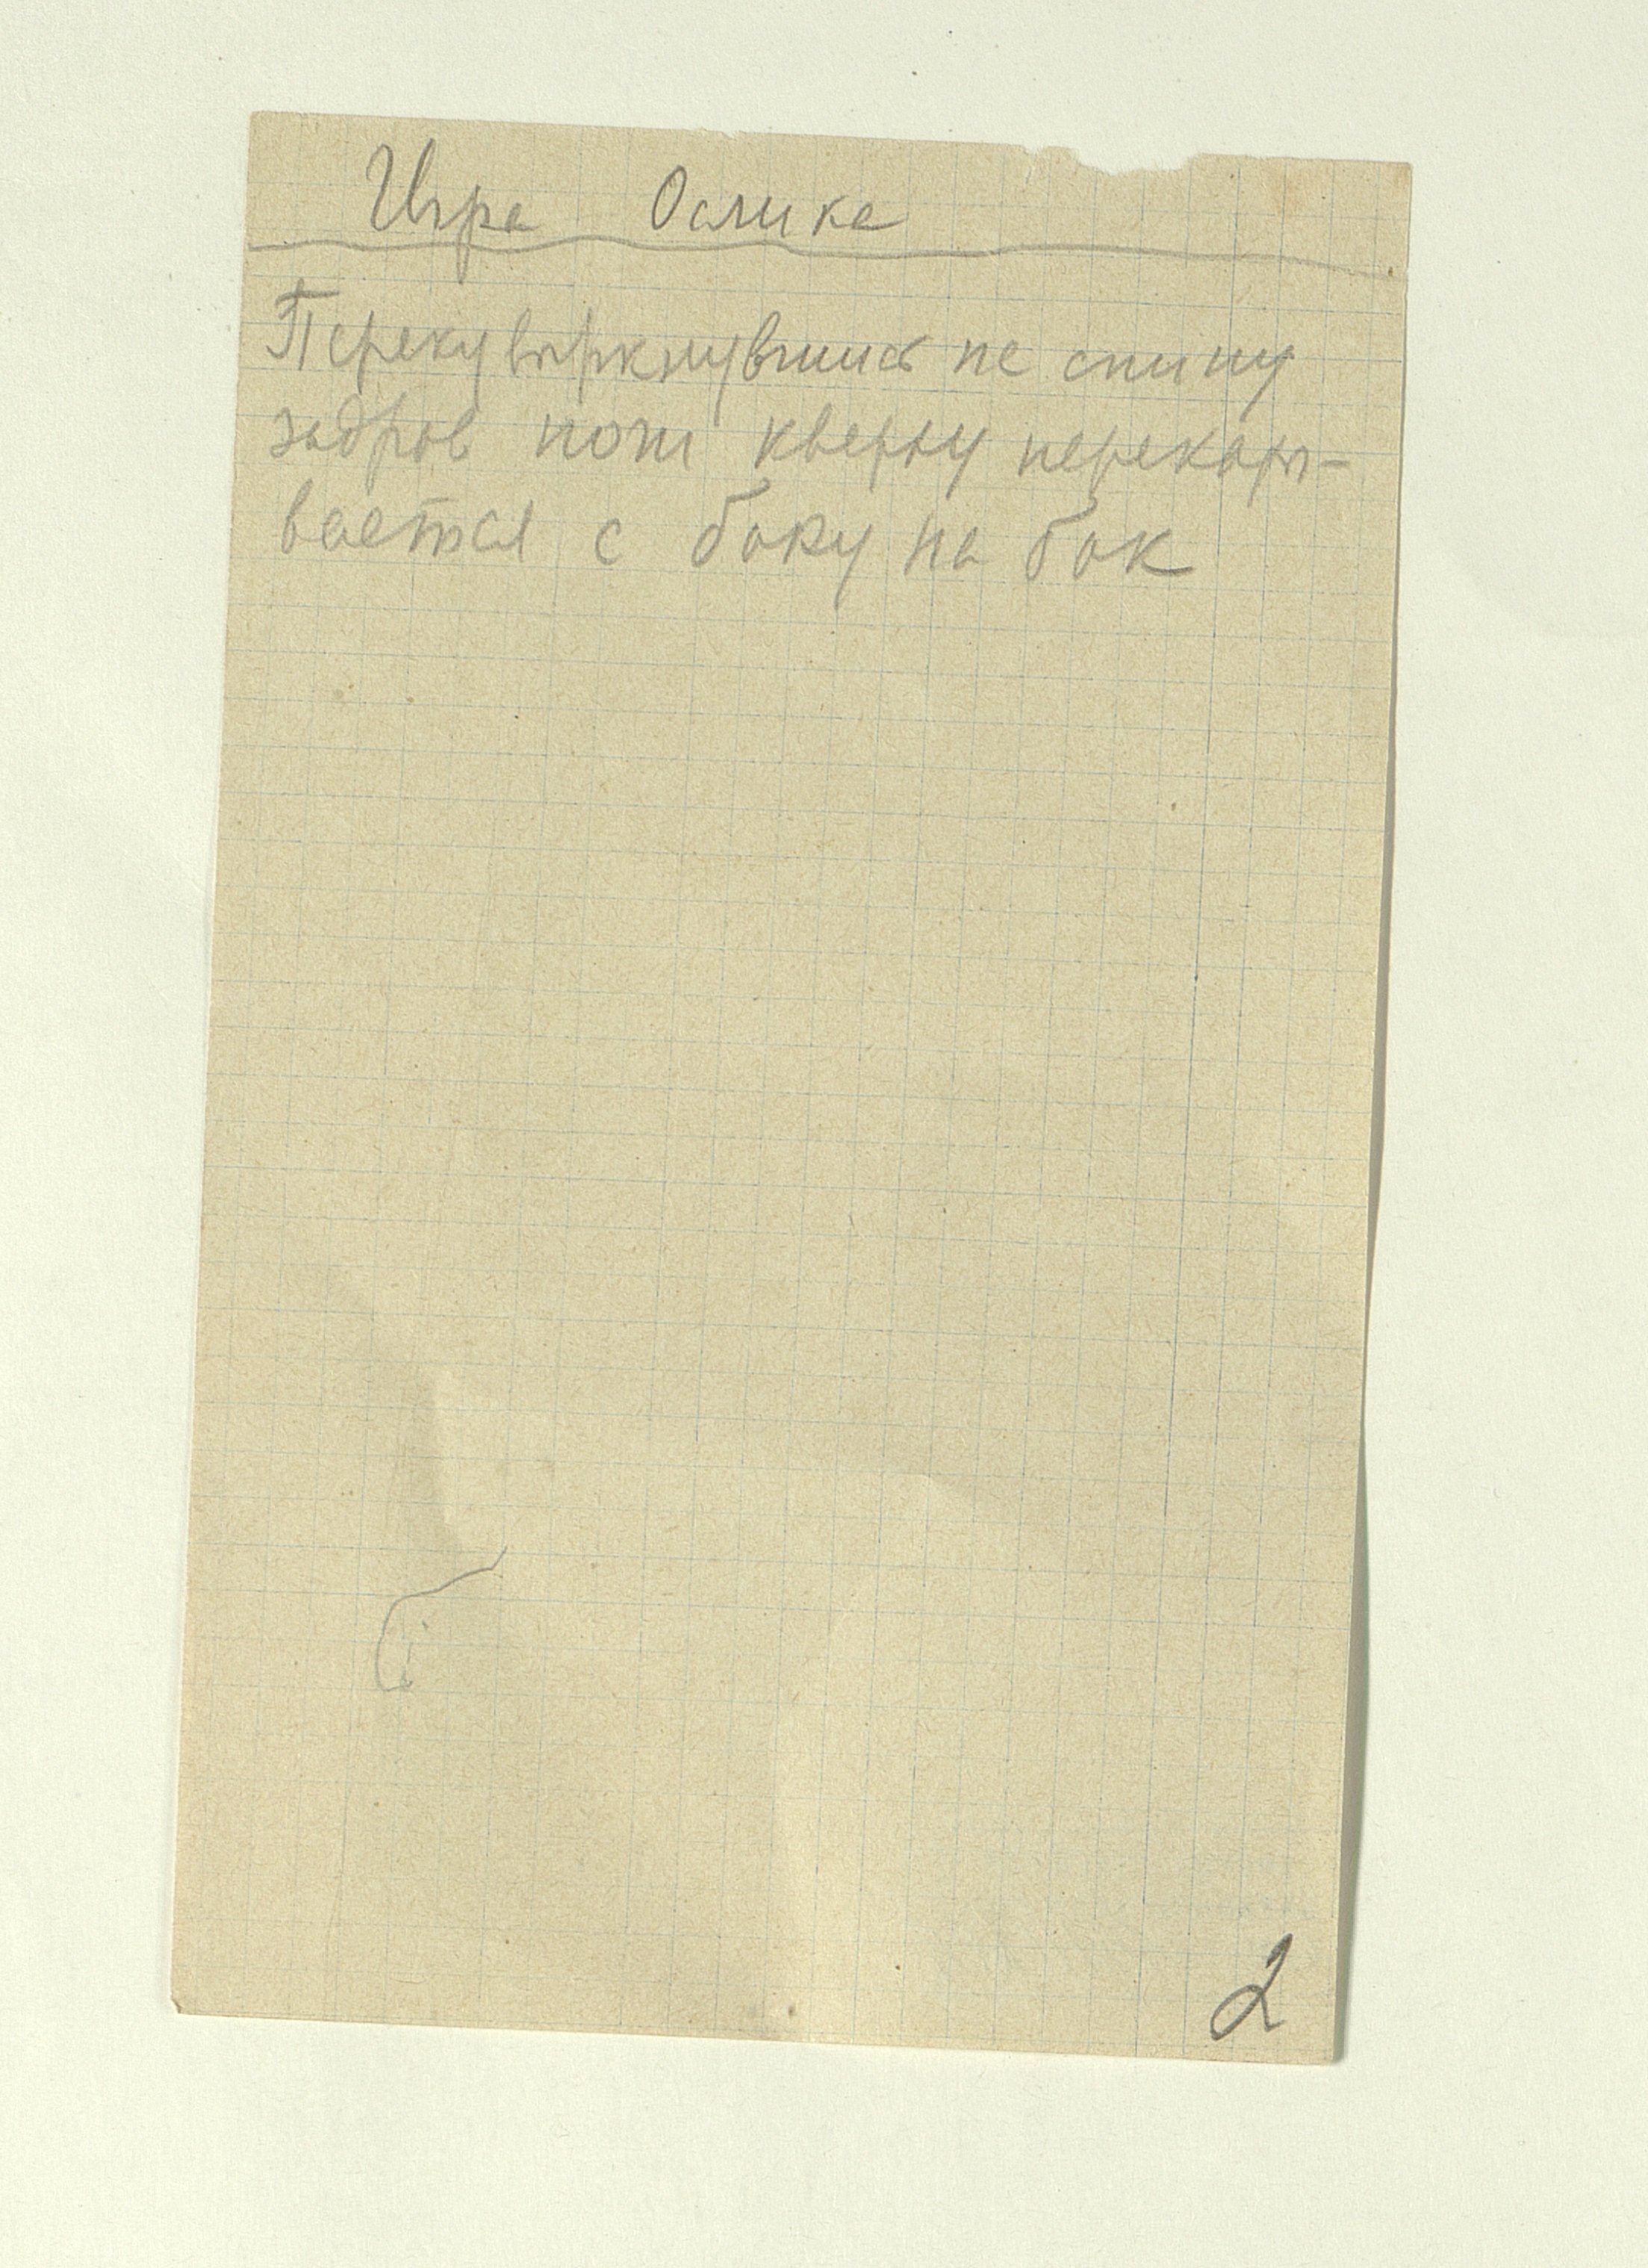 Игра Ослика
Перекувыркнувшись на спину
задрав ноги кверху перекаты-
вается с боку на бок
2